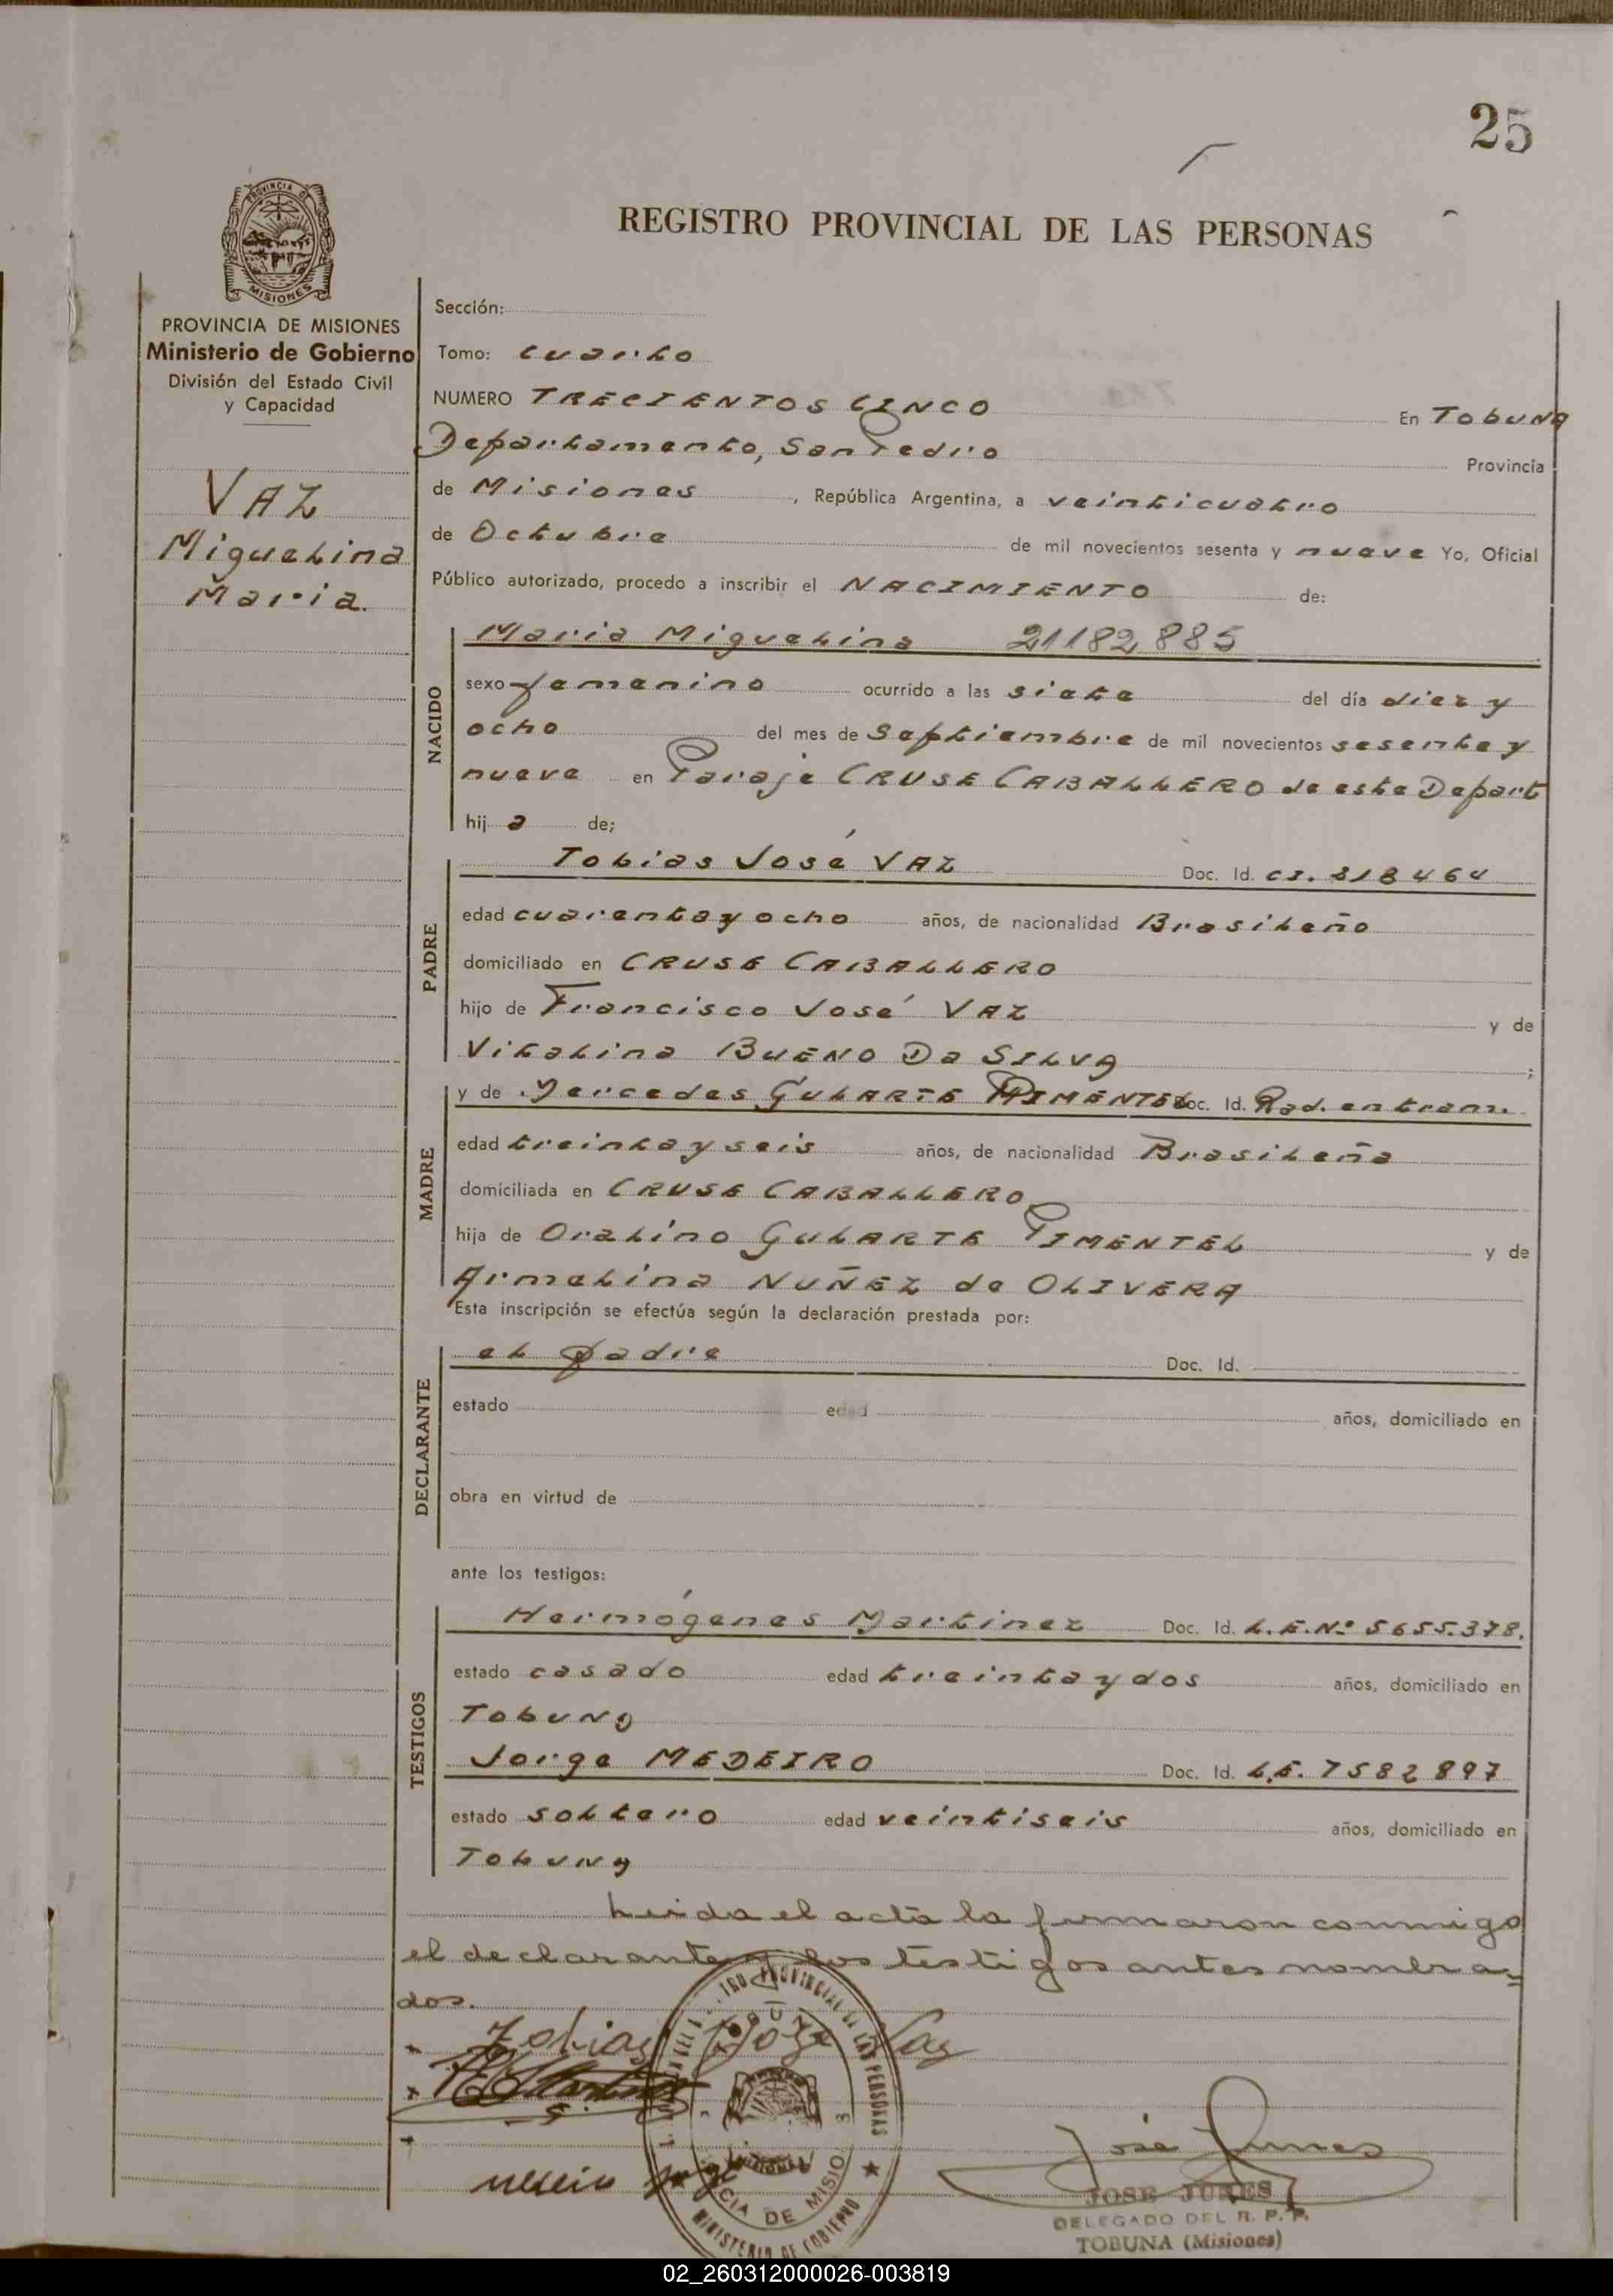 25
REGISTRO PROVINCIAL DE LAS PERSONAS
PROVINCIA DE MISIONES
Ministerio de Gobierno
División del Estado Civil
y Capacidad
VAZ
Miguelina
Maria.
Sección:
Tomo: cuarto
NUMERO TRECIENTOS CINCO En Tobuna
Departamento, San Pedro Provincia
de Misiones, República Argentina, a veinticuatro
de Octubre de mil novecientos sesenta y nueve Yo, Oficial
Público autorizado, procedo a inscribir el NACIMIENTO de:
NACIDO
Maria Miguelina 21182885
sexo femenino ocurrido a las siete del día diez y
ocho del mes de Septiembre de mil novecientos sesenta y
nueve en Paraje CRUSE CABALLERO de este Depart
hij a de;
PADRE
Tobias José VAZ Doc. Id. CI. 318464
edad cuarenta y ocho años, de nacionalidad Brasileño
domiciliado en CRUSE CABALLERO
hijo de Francisco José VAZ y de
Vitalina BUENO Da SILVA ;
MADRE
y de Mercedes GULARTE PIMENTEL Doc. Id. Rad. en tram.
edad treinta y seis años, de nacionalidad Brasileña
domiciliada en CRUSE CABALLERO
hija de Oralino GULARTE PIMENTEL y de
Armelina NUÑEZ de OLIVERA
Esta inscripción se efectúa según la declaración prestada por:
DECLARANTE
el padre Doc. Id.
estado edad años, domiciliado en
obra en virtud de
ante los testigos:
TESTIGOS
Hermógenes Martinez Doc. Id. L.E.Nº 5655.378.
estado casado edad treinta y dos años, domiciliado en
Tobuna
Jorge MEDEIRO Doc. Id. L.E. 7582897
estado soltero edad veintiseis años, domiciliado en
Tobuna
Leida el acta la firmaron conmigo
el declarante y los testigos antes nombra-
dos.
Tobias Joze Vaz
José Junes
JOSE JUNES
DELEGADO DEL R. P. P.
TOBUNA (Misiones)
PROVINCIAL DE LAS PERSONAS
MINISTERIO DE GOBIERNO
02_260312000026-003819